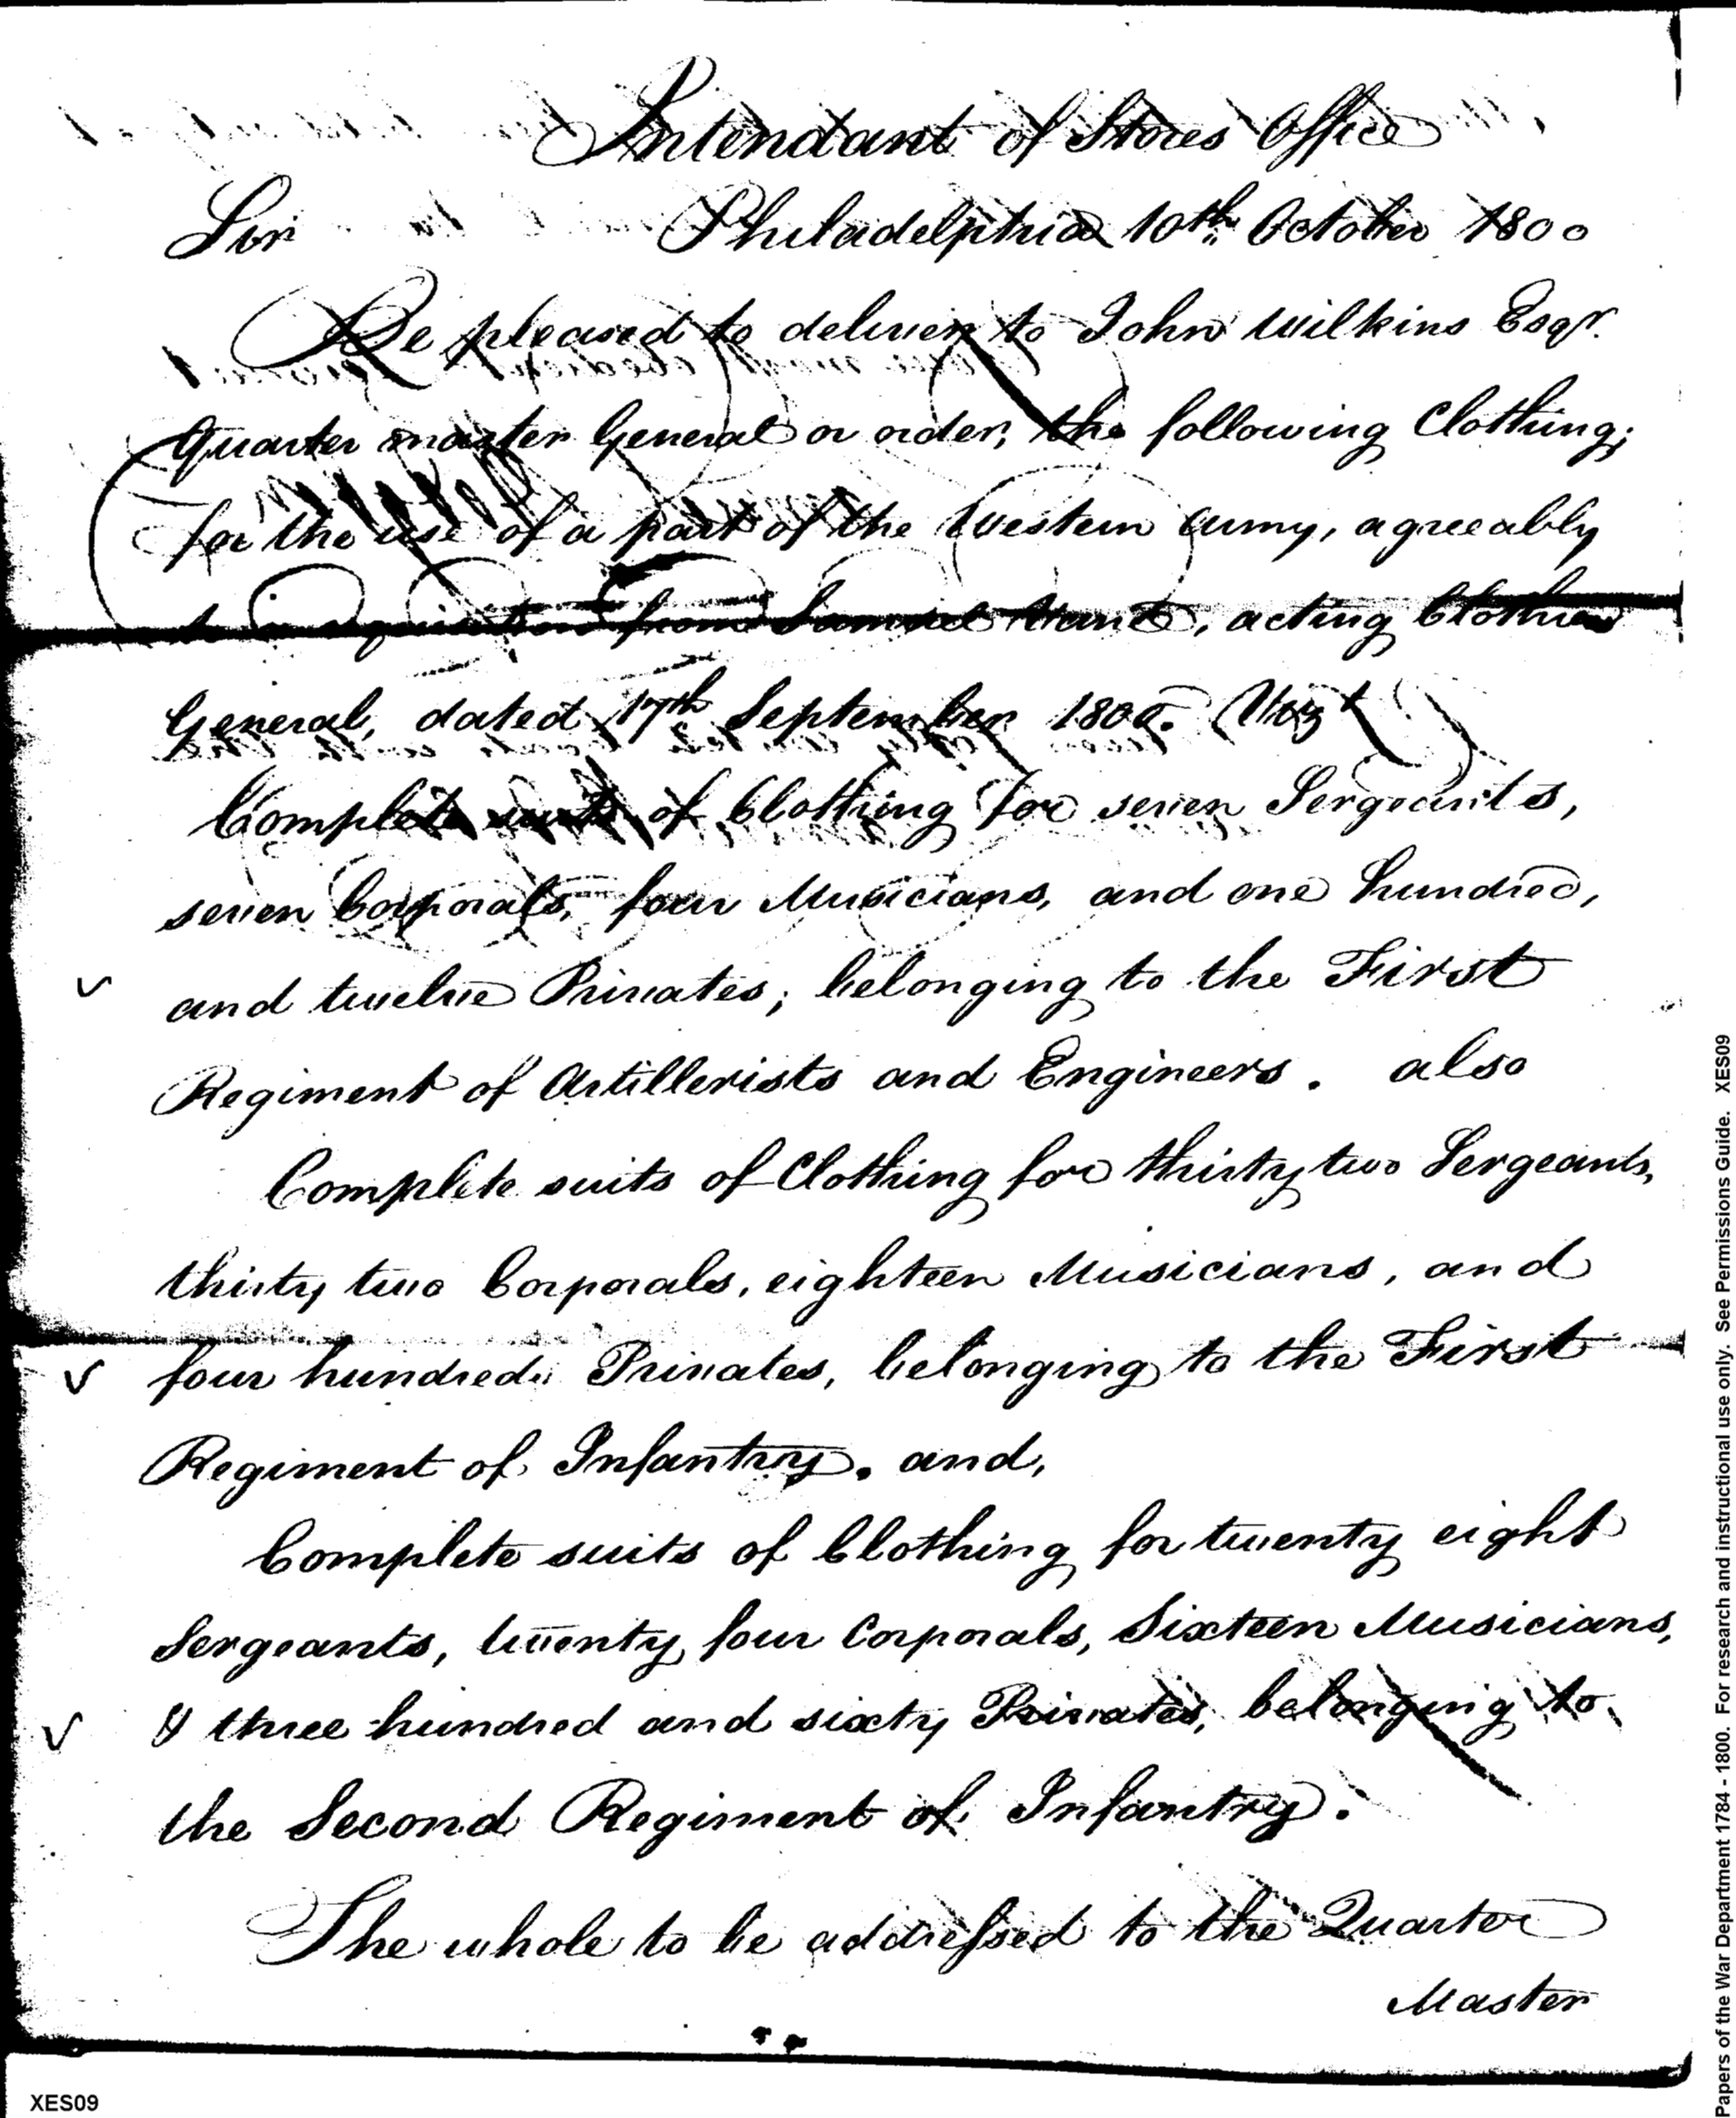 Intendant of Stores Office
Sir Philadelphia 10th October 1800
Be pleased to deliver to John Wilkins Esqr.
Quarter master General or order, the following Clothing;
for the use of a part of the Western Army, agreeably
to requisition from Samuel, acting Clothier
General, dated 17th September 1800. Vizt
Complete suits of Clothing for seven Sergeants,
seven Corporals, four Musicians, and one hundred,
and twelve Privates; belonging to the First
Regiment of Artillerists and Engineers. also
Complete suits of Clothing for thirty two Sergeants,
thirty two Corporals, eighteen Musicians, and
four hundred Privates, belonging to the First
Regiment of Infantry. and,
Complete suits of Clothing for twenty eight
Sergeants, twenty four Corporals, Sixteen Musicians,
& three hundred and sixty Privates, belonging to
the Second Regiment of Infantry.
The whole to be addressed to the Quarter
Master
XES09
Papers of the War Department 1784 - 1800. For research and instructional use only. See Permissions Guide. XES09